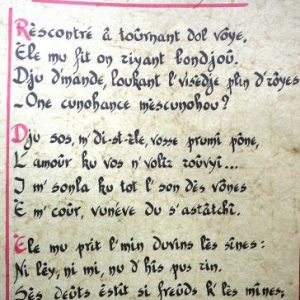 Rèscontré â tournant dol vôye,
Ele mu fit on riyant bondjoû.
Dju d'mande, loukant l'visèdje plin d'rôyes
-One cunohance mèscunohou?
Dju sos, m'di-st-èle, vosse prumî pône,
L'amoûr ku vos n'volîz roûvyî...
I m'sonla ku tot l'son dès vônes
E m'coûr, vunéve du s'astâtchî.
Ele mu prit l'min duvins lès sînes:
Ni lèy, ni mi, nu d'his pus rin.
Sès deûts èstît si freûds k'lès mines;